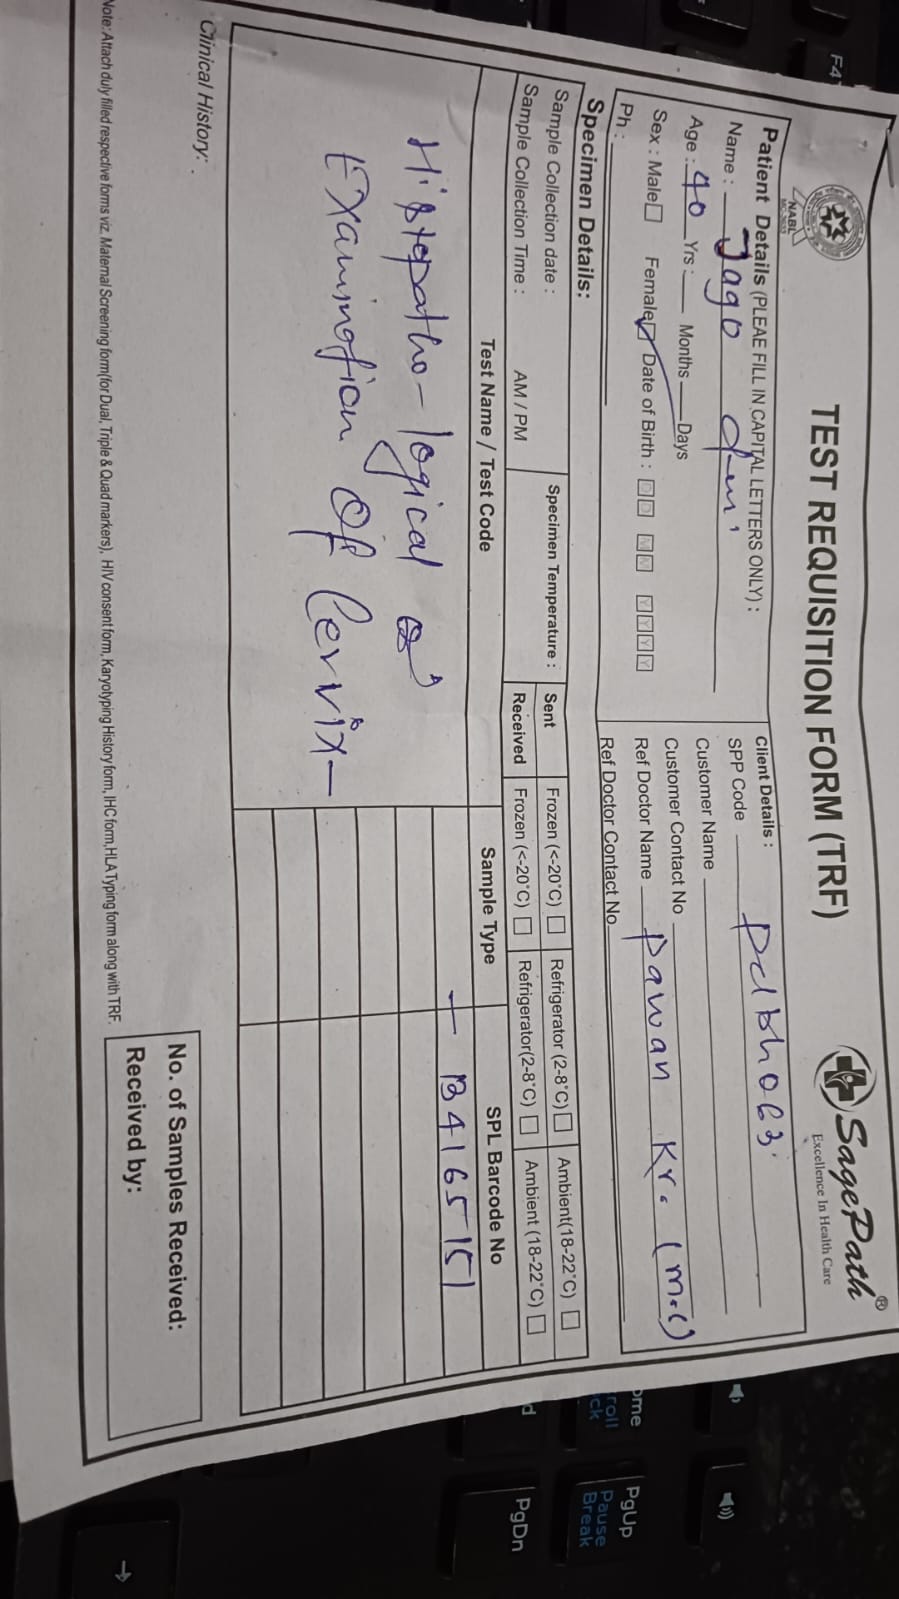 TEST REQUISITION FORM (TRF)
SagePath®
Excellence In Health Care
NABL
Patient Details (PLEAE FILL IN CAPITAL LETTERS ONLY) :
Name : Jago
Age : 40 Yrs : Months Days
Sex : Male Female Date of Birth : D D M M Y Y Y Y
Ph :
Client Details :
SPP Code Pdbh063
Customer Name
Customer Contact No
Ref Doctor Name Pawan Kr.
Ref Doctor Contact No
Specimen Details:
Sample Collection date :
Sample Collection Time : AM / PM
Specimen Temperature :
Sent Frozen (<-20°C) Refrigerator (2-8°C) Ambient(18-22°C)
Received Frozen (<-20°C) Refrigerator(2-8°C) Ambient (18-22°C)
Test Name / Test Code Sample Type SPL Barcode No
Histopatho-logical
Examination Of Cervix
Clinical History:
No. of Samples Received:
Received by:
Note: Attach duly filled respective forms viz. Maternal Screening form(for Dual, Triple & Quad markers), HIV consent form, Karyotyping History form, IHC form, HLA Typing form along with TRF.
F4
PgUp
Pause
Break
PgDn